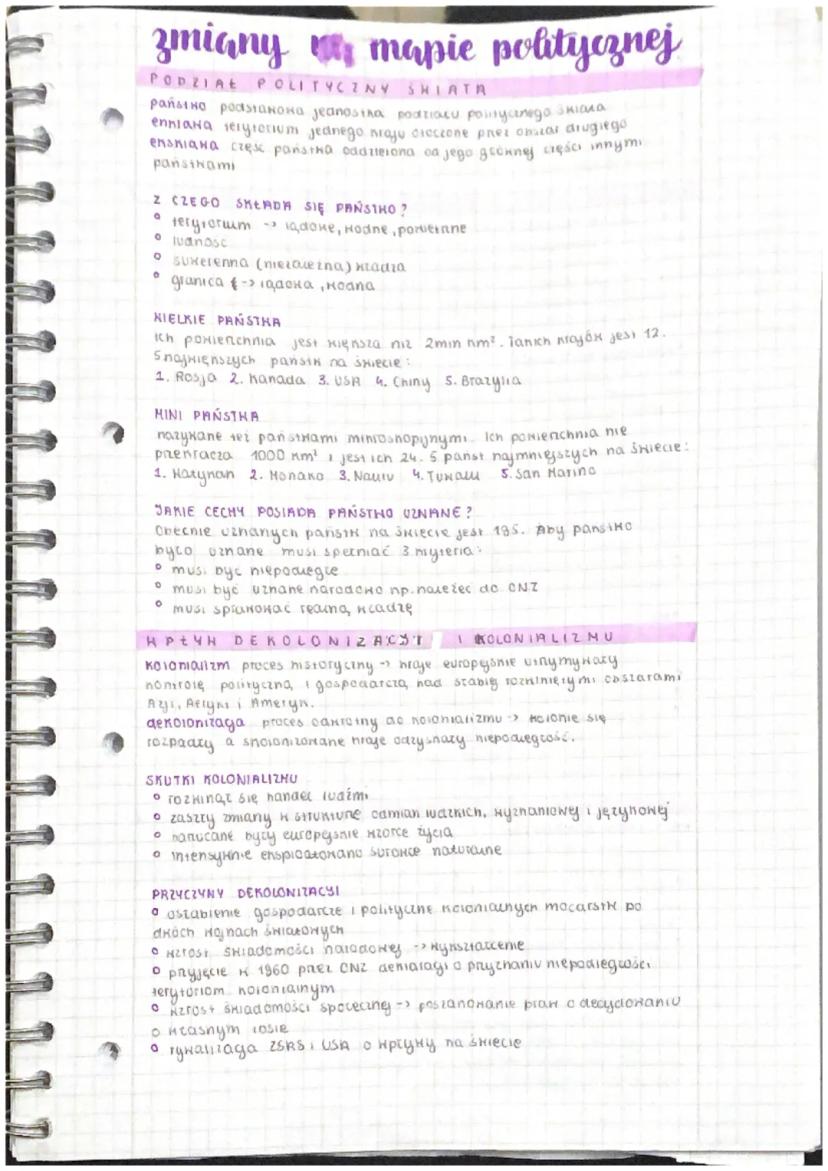 zmiany na mapie politycznej
PODZIAŁ POLITYCZNY ŚWIATA
państwo podstawowa jednostka podziału politycznego świata
enklawa terytorium jednego kraju otoczone przez obszar drugiego
eksklawa część państwa oddzielona od jego głównej części innymi
państwami
Z CZEGO SKŁADA SIĘ PAŃSTWO?
° terytorium -> lądowe, wodne, powietrzne
° ludność
° suwerenna (niezależna) władza
° granica -> lądowa, wodna
WIELKIE PAŃSTWA
Ich powierzchnia jest większa niż 2mln km². Takich krajów jest 12.
5 największych państw na świecie:
1. Rosja 2. Kanada 3. USA 4. Chiny 5. Brazylia
MINI PAŃSTWA
nazywane też państwami mikroskopijnymi. Ich powierzchnia nie
przekracza 1000 km² i jest ich 24. 5 państ najmniejszych na świecie:
1. Watykan 2. Monako 3. Nauru 4. Tuwalu 5. San Marino
JAKIE CECHY POSIADA PAŃSTWO UZNANE?
Obecnie uznanych państw na świecie jest 195. Aby państwo
było uznane musi spełniać 3 kryteria:
° musi być niepodległe
° musi być uznane narodowo np. należeć do ONZ
° musi sprawować realną władzę
WPŁYW DEKOLONIZACJI I KOLONIALIZMU
kolonializm proces historyczny -> kraje europejskie utrzymywały
kontrolę polityczną i gospodarczą nad słabię rozwiniętymi obszarami
Azji, Afryki i Ameryki.
dekolonizacja proces odwrotny do kolonializmu -> kolonie się
rozpadły a skolonizowane kraje odzyskały niepodległość.
SKUTKI KOLONIALIZMU
° rozwinął się handel ludźmi
° zaszły zmiany w strukturze odmian ludzkich, wyznaniowej i językowej
° narzucane były europejskie wzorce życia
° intensywnie eksploatowano surowce naturalne
PRZYCZYNY DEKOLONIZACJI
° osłabienie gospodarcze i polityczne kolonialnych mocarstw po
dwóch wojnach światowych
° wzrost świadomości narodowej -> wykształcenie
° przyjęcie w 1960 przez ONZ deklaracji o przyznaniu niepodległości
terytoriom kolonialnym
° wzrost świadomości społecznej -> poszanowanie praw o decydowaniu
o własnym losie
° rywalizacja ZSRS i USA o wpływy na świecie